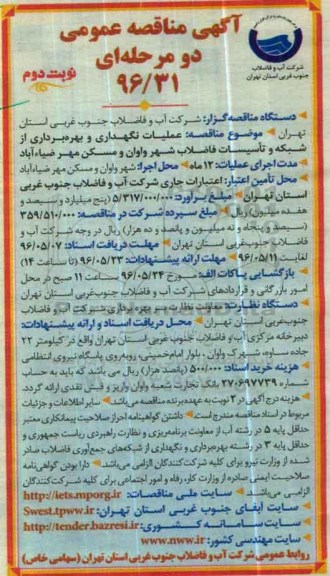 آگهی مناقصه عمومی
دو مرحله‌ای
۹۶/۳۱
نوبت دوم
شرکت آب و فاضلاب
جنوب غربی استان تهران
دستگاه مناقصه‌گزار: شرکت آب و فاضلاب جنوب غربی استان
تهران موضوع مناقصه: عملیات نگهداری و بهره‌برداری از
شبکه و تأسیسات فاضلاب شهر واوان و مسکن مهر ضیاءآباد
مدت اجرای عملیات: ۱۲ ماه محل اجرا: شهر واوان و مسکن مهر ضیاءآباد
محل تأمین اعتبار: اعتبارات جاری شرکت آب و فاضلاب جنوب غربی
استان تهران مبلغ برآورد: ۵/۳۱۷/۰۰۰/۰۰۰ (پنج میلیارد و سیصد و
هفده میلیون) ریال مبلغ سپرده شرکت در مناقصه: ۳۵۹/۵۱۰/۰۰۰
(سیصد و پنجاه و نه میلیون و پانصد و ده هزار) ریال در وجه شرکت آب و
فاضلاب جنوب‌غربی استان تهران مهلت دریافت اسناد: ۹۶/۰۵/۰۷
لغایت ۹۶/۰۵/۱۱ مهلت ارائه پیشنهادات: ۹۶/۰۵/۲۳ (تا ساعت ۱۴)
بازگشایی پاکات الف: مورخ ۹۶/۰۵/۲۴ ساعت ۱۱ صبح در محل
امور بازرگانی و قراردادهای شرکت آب و فاضلاب جنوب‌غربی استان تهران
دستگاه نظارت: معاونت نظارت بر بهره برداری شرکت آب و فاضلاب
جنوب‌غربی استان تهران محل دریافت اسناد و ارائه پیشنهادات:
دبیرخانه مرکزی آب و فاضلاب جنوب غربی استان تهران واقع در کیلومتر ۲۲
جاده ساوه، شهرک واوان، بلوار امام‌خمینی، روبه‌روی پاسگاه نیروی انتظامی
هزینه خرید اسناد: ۵۰۰/۰۰۰ (پانصد هزار) ریال می باشد که باید به حساب
شماره ۲۷۰۶۹۷۷۳۹ بانک تجارت شعبه واوان واریز و فیش نقدی ارائه گردد.
هزینه درج آگهی در ۲ نوبت به عهده برنده مناقصه می‌باشد سایر اطلاعات و جزئیات
مربوط در اسناد مناقصه مندرج است. داشتن گواهینامه احراز صلاحیت پیمانکاری معتبر
حداقل پایه ۵ در رشته آب از معاونت برنامه‌ریزی و نظارت راهبردی ریاست جمهوری و
حداقل پایه ۳ در رشته بهره‌برداری و نگهداری از شبکه‌های جمع‌آوری فاضلاب صادر
شده از وزارت نیرو برای کلیه شرکت‌کنندگان الزامی می‌باشد. دارا بودن گواهی‌نامه
صلاحیت ایمنی صادره از وزارت کار، رفاه و امور اجتماعی برای کلیه شرکت‌کنندگان
الزامی می‌باشد. سایت ملی مناقصات: http://iets.mporg.ir
سایت آبفای جنوب غربی استان تهران: Swest.tpww.ir
سایت سامانه کشوری: http://tender.bazresi.ir
سایت مهندسی کشور: www.nww.ir
روابط عمومی شرکت آب و فاضلاب جنوب غربی استان تهران (سهامی خاص)